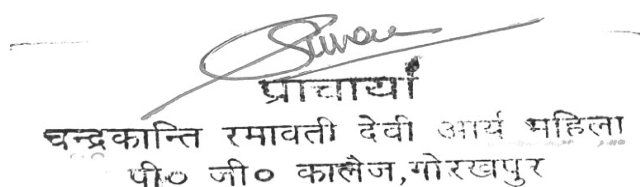 Suman
प्राचार्या
चन्द्रकान्ति रमावती देवी आर्य महिला
पी० जी० कालेज,गोरखपुर